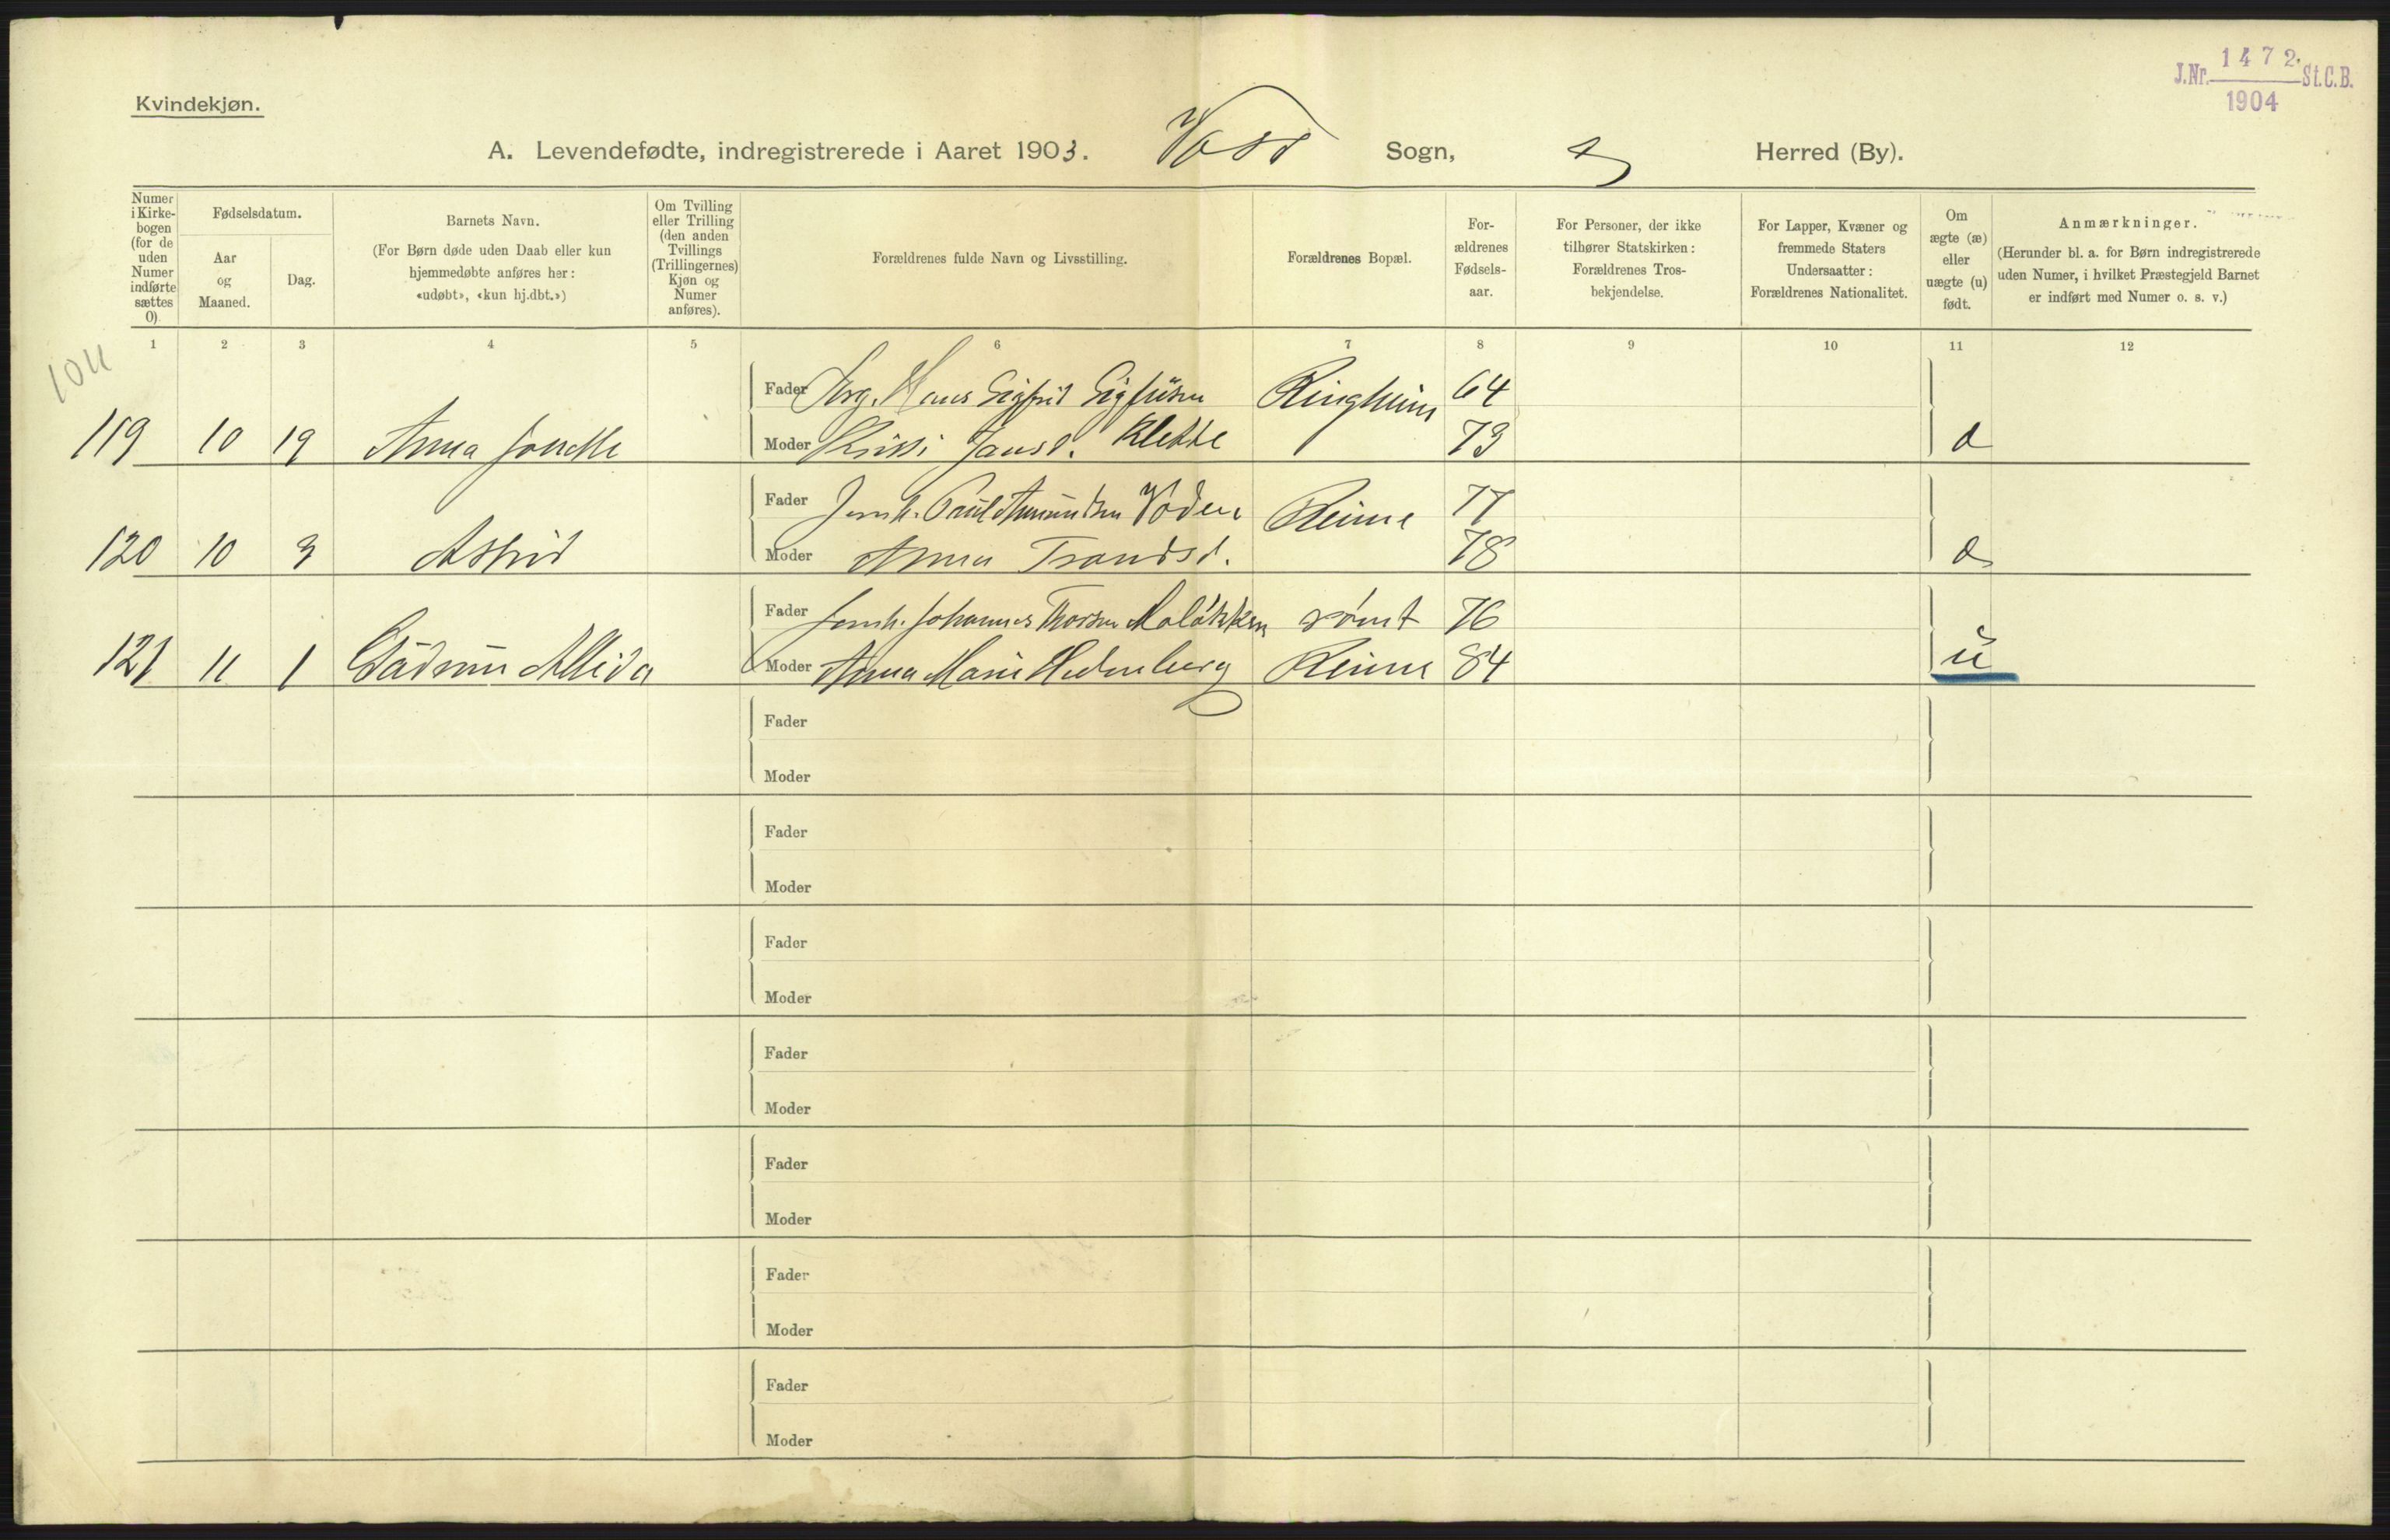 J.Nr. 1472. St.C.B.
1904
Kvindekjøn.
A. Levendefødte, indregistrerede i Aaret 1903. Voss Sogn, Herred (By).
Numer i Kirkebogen (for de uden Numer indførte sættes 0)
Fødselsdatum.
Aar og Maaned.
Dag.
Barnets Navn.
(For Børn døde uden Daab eller kun hjemmedøbte anføres her: «udøbt», «kun hj.dbt.»)
Om Tvilling eller Trilling (den anden Tvillings (Trillingernes) Kjøn og Numer anføres).
Forældrenes fulde Navn og Livsstilling.
Forældrenes Bopæl.
Forældrenes Fødselsaar.
For Personer, der ikke tilhører Statskirken: Forældrenes Trosbekjendelse.
For Lapper, Kvæner og fremmede Staters Undersaatter: Forældrenes Nationalitet.
Om ægte (æ) eller uægte (u) født.
Anmærkninger.
(Herunder bl. a. for Børn indregistrerede uden Numer, i hvilket Præstegjeld Barnet er indført med Numer o. s. v.)
1 2 3 4 5 6 7 8 9 10 11 12
Fader Hans Sigfrid Ringheim 64
119 10 19 Anna Moder Jansd. Klette 73
Fader Amundsen 77
120 10 3 Astrid Moder Anna 78
Fader Johannes 76
121 11 1 Moder Anna Marie 84 u
Fader
Moder
Fader
Moder
Fader
Moder
Fader
Moder
Fader
Moder
Fader
Moder
Fader
Moder